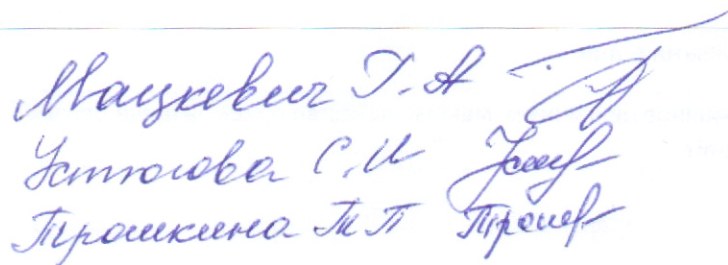 Мацкевич Г. А
Устюгова С. И
Трошкина Т П